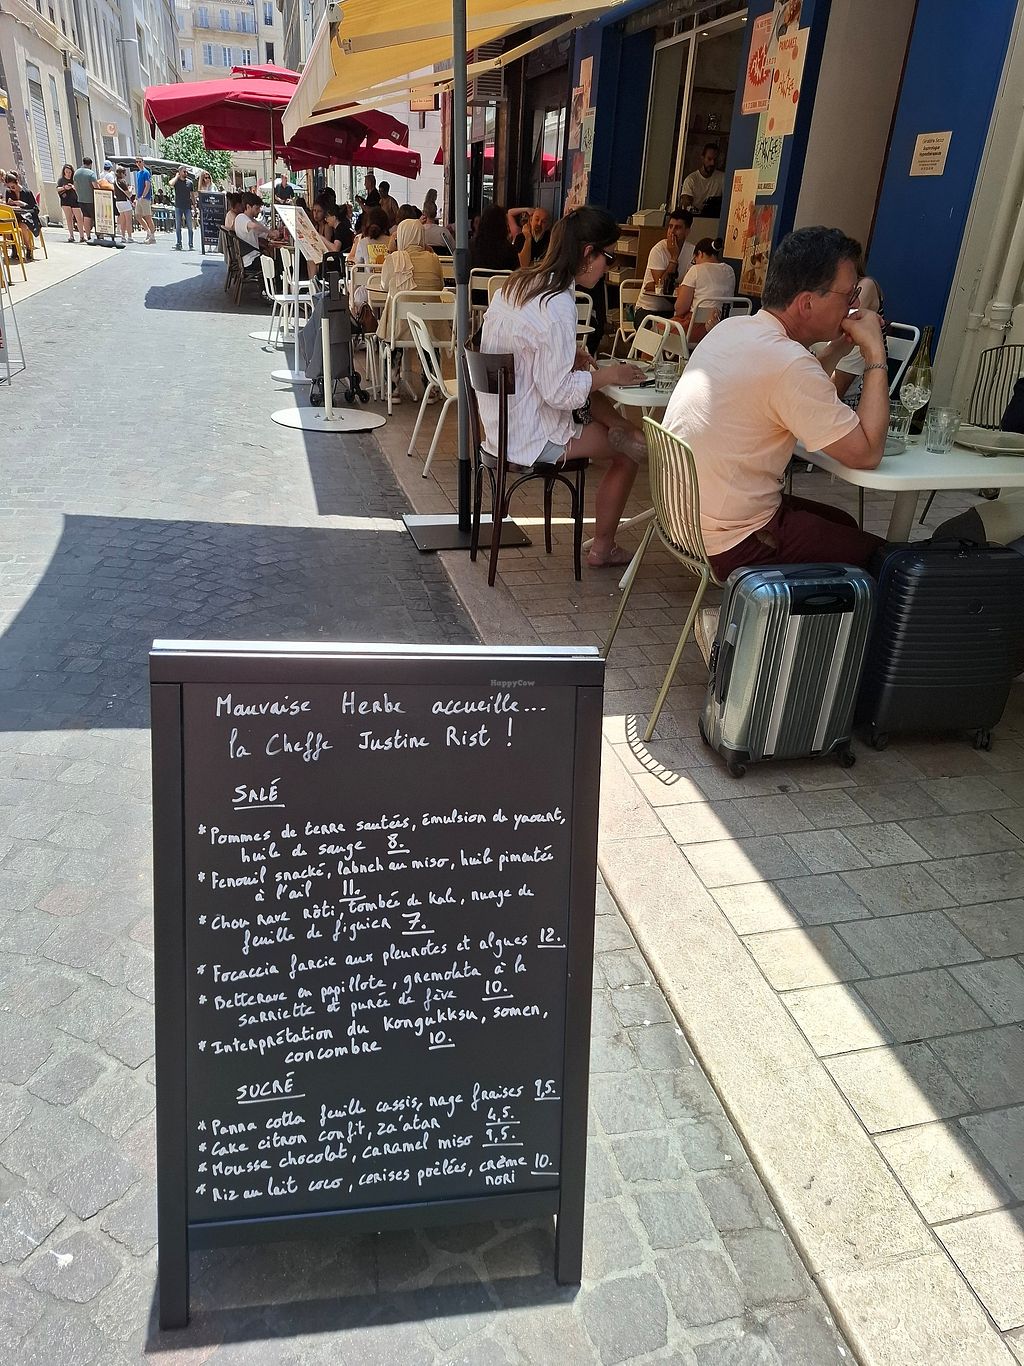 HappyCow
Mauvaise Herbe accueille...
la Cheffe Justine Rist !
SALÉ
* Pommes de terre sautées, émulsion de yaourt,
huile de sauge 8.
* Fenouil snacké, labneh au miso, huile pimentée
à l'ail 11.
* Chou rave rôti, tombée de kale, nuage de
feuille de figuier 7.
* Focaccia farcie aux pleurotes et algues 12.
* Betterave en papillote, gremolata à la
sarriette et purée de fève 10.
* Interprétation du Kongukksu, somen,
concombre 10.
SUCRÉ
* Panna cotta feuille cassis, nage fraises 9,5.
* Cake citron confit, za'atar 4,5.
* Mousse chocolat, caramel miso 9,5.
* Riz au lait coco, cerises poêlées, crème 10.
nori